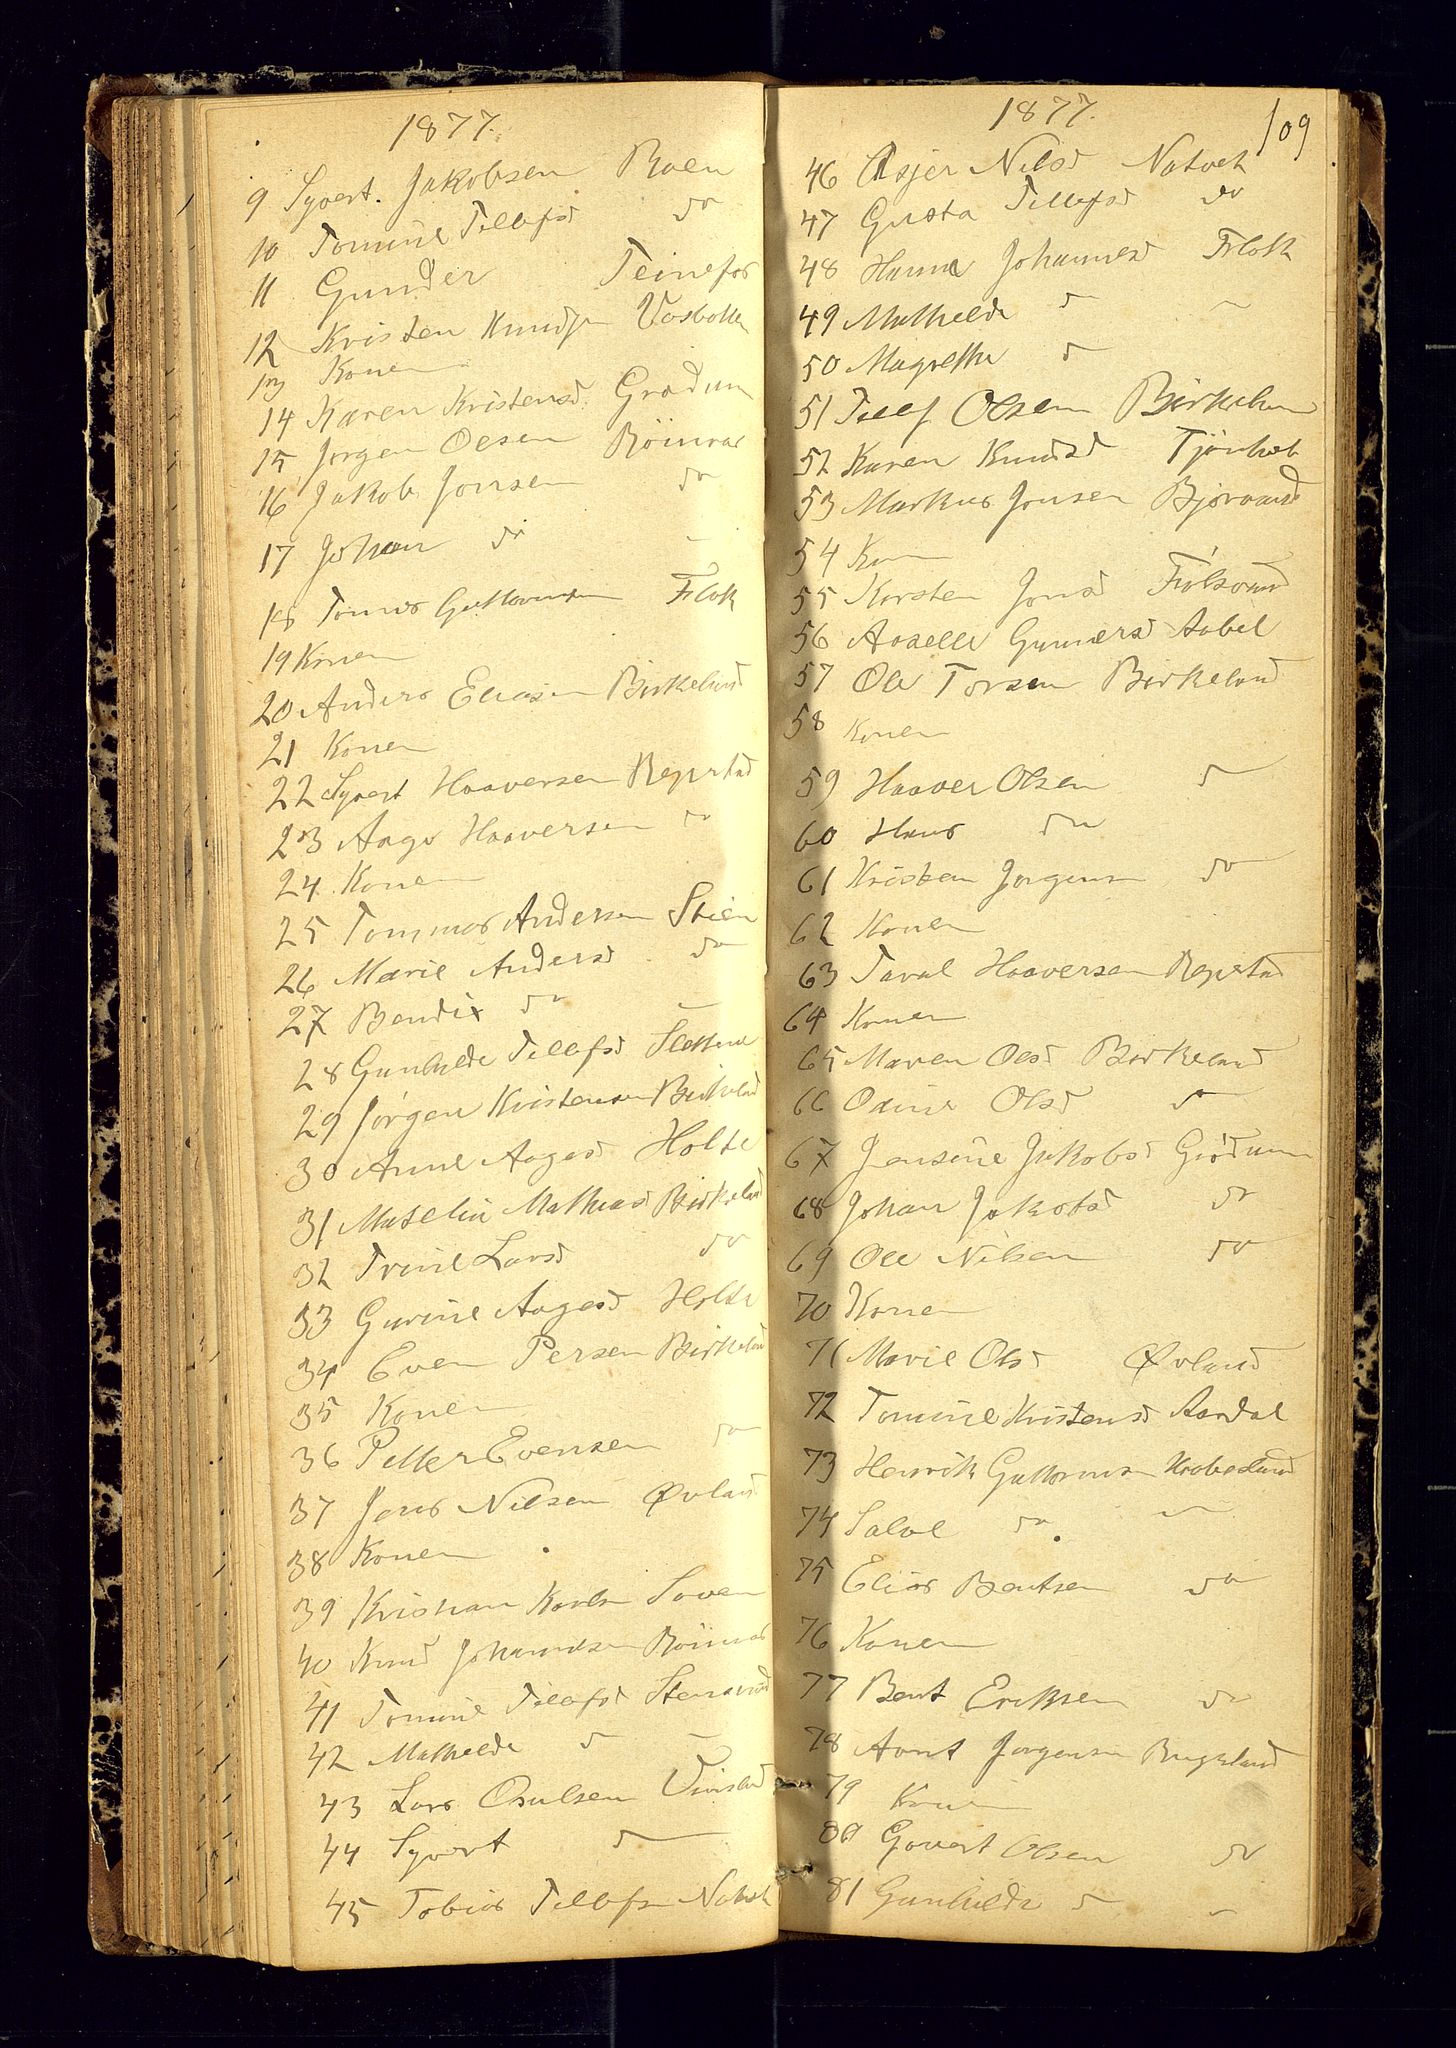 1877.
9 Syvert. Jakobsen Roen
10 Tomine Tellefsd do
11 Gunder Teinefos
12 Kristen Knudsen
13 Konen
14 Karen Kristensd. Grødum
15 Jørgen Olsen Röinaas
16 Jakob Jonsen do
17 Johan do –
18 Tomas Guttormsen Flak
19 Konen
20 Anders Eliasen Birkeland
21 Konen
22 Syvert Haaversen Repstad
23 Aage Haaversen do
24 Konen
25 Tommas Andersen Stien
26 Marie Andersd do
27 Bendix do –
28 Gunhilde Tellefsd
29 Jørgen Kristensen Birkeland
30 Anne Aagesd Holte
31 Matelie Mathiasd Birkeland
32 Trine Larsd do
33 Gurine Aagesd Holte
34 Even Persen Birkeland
35 Konen
36 Petter Evensen do
37 Jens Nilsen Øvland
38 Konen
39 Kristian Karlsen
40 Knud Johannesen Röinaas
41 Tomine Tellefsd
42 Mathilde d –
43 Lars Osulsen
44 Syvert d
45 Tobias Tellefsen Natvek
1877.
109
46 Asjer Nilsd Natvek
47 Gusta Tellefsd do
48 Hanne Johannesd Flak
49 Mathilde d –
50 Magrethe d
51 Tellef Olsen Birkeland
52 Karen Knudsd
53 Markus Jonsen Bjorvand
54 Kon
55 Karsten Jonsd
56 Gunnersd Aabel
57 Ole Torsen Birkeland
58 Konen
59 Haaver Olsen d
60 Hans do
61 Kristen Jørgensen do
62 Konen
63 Taral Haaversen Repstad
64 Konen
65 Maren Olsd Birkeland
66 Olsd do
67 Jensine Jakobsd Grödum
68 Johan Jakobsd do
69 Ole Nilsen do
70 Konen
71 Marie Olsd Øvland
72 Tomine Kristensd Aardal
73 Henrik Guttormsen
74 Salve do –
75 Elias Bentsen do
76 Konen
77 Bent Eriksen do
78 Arnt Jørgensen
79 Konen
80 Govert Olsen do
81 Gunhilde d –